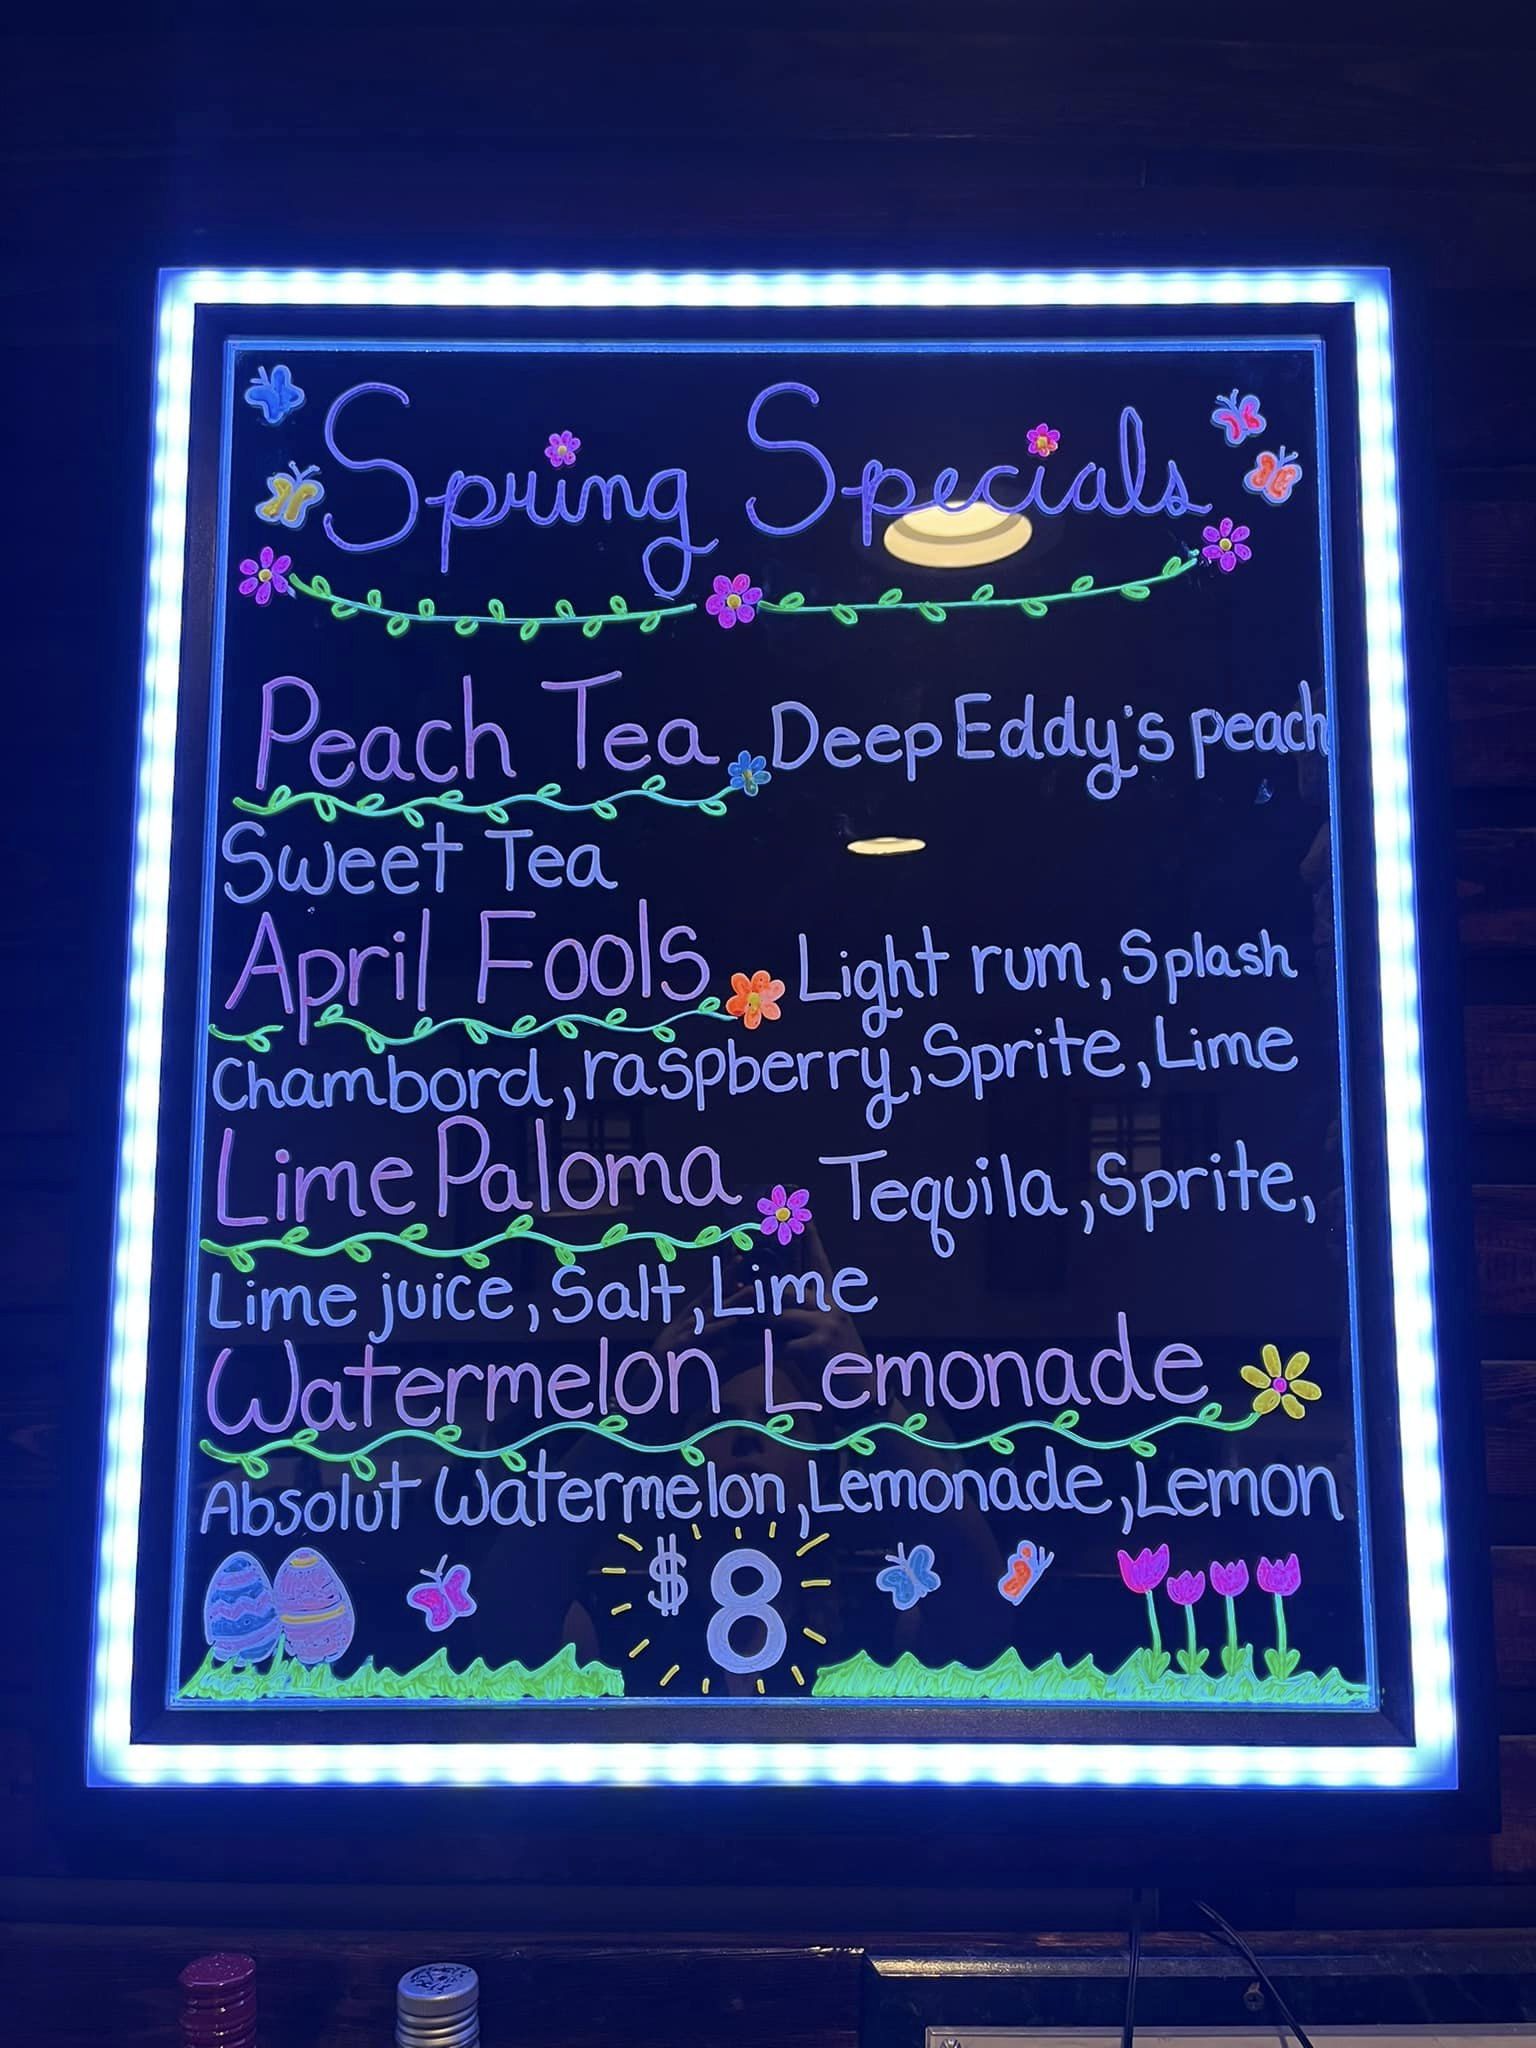 Spring Specials
Peach Tea Deep Eddy's peach
Sweet Tea
April Fools Light rum, Splash
Chambord, raspberry, Sprite, Lime
Lime Paloma Tequila, Sprite,
Lime juice, Salt, Lime
Watermelon Lemonade
Absolut Watermelon, Lemonade, Lemon
$8